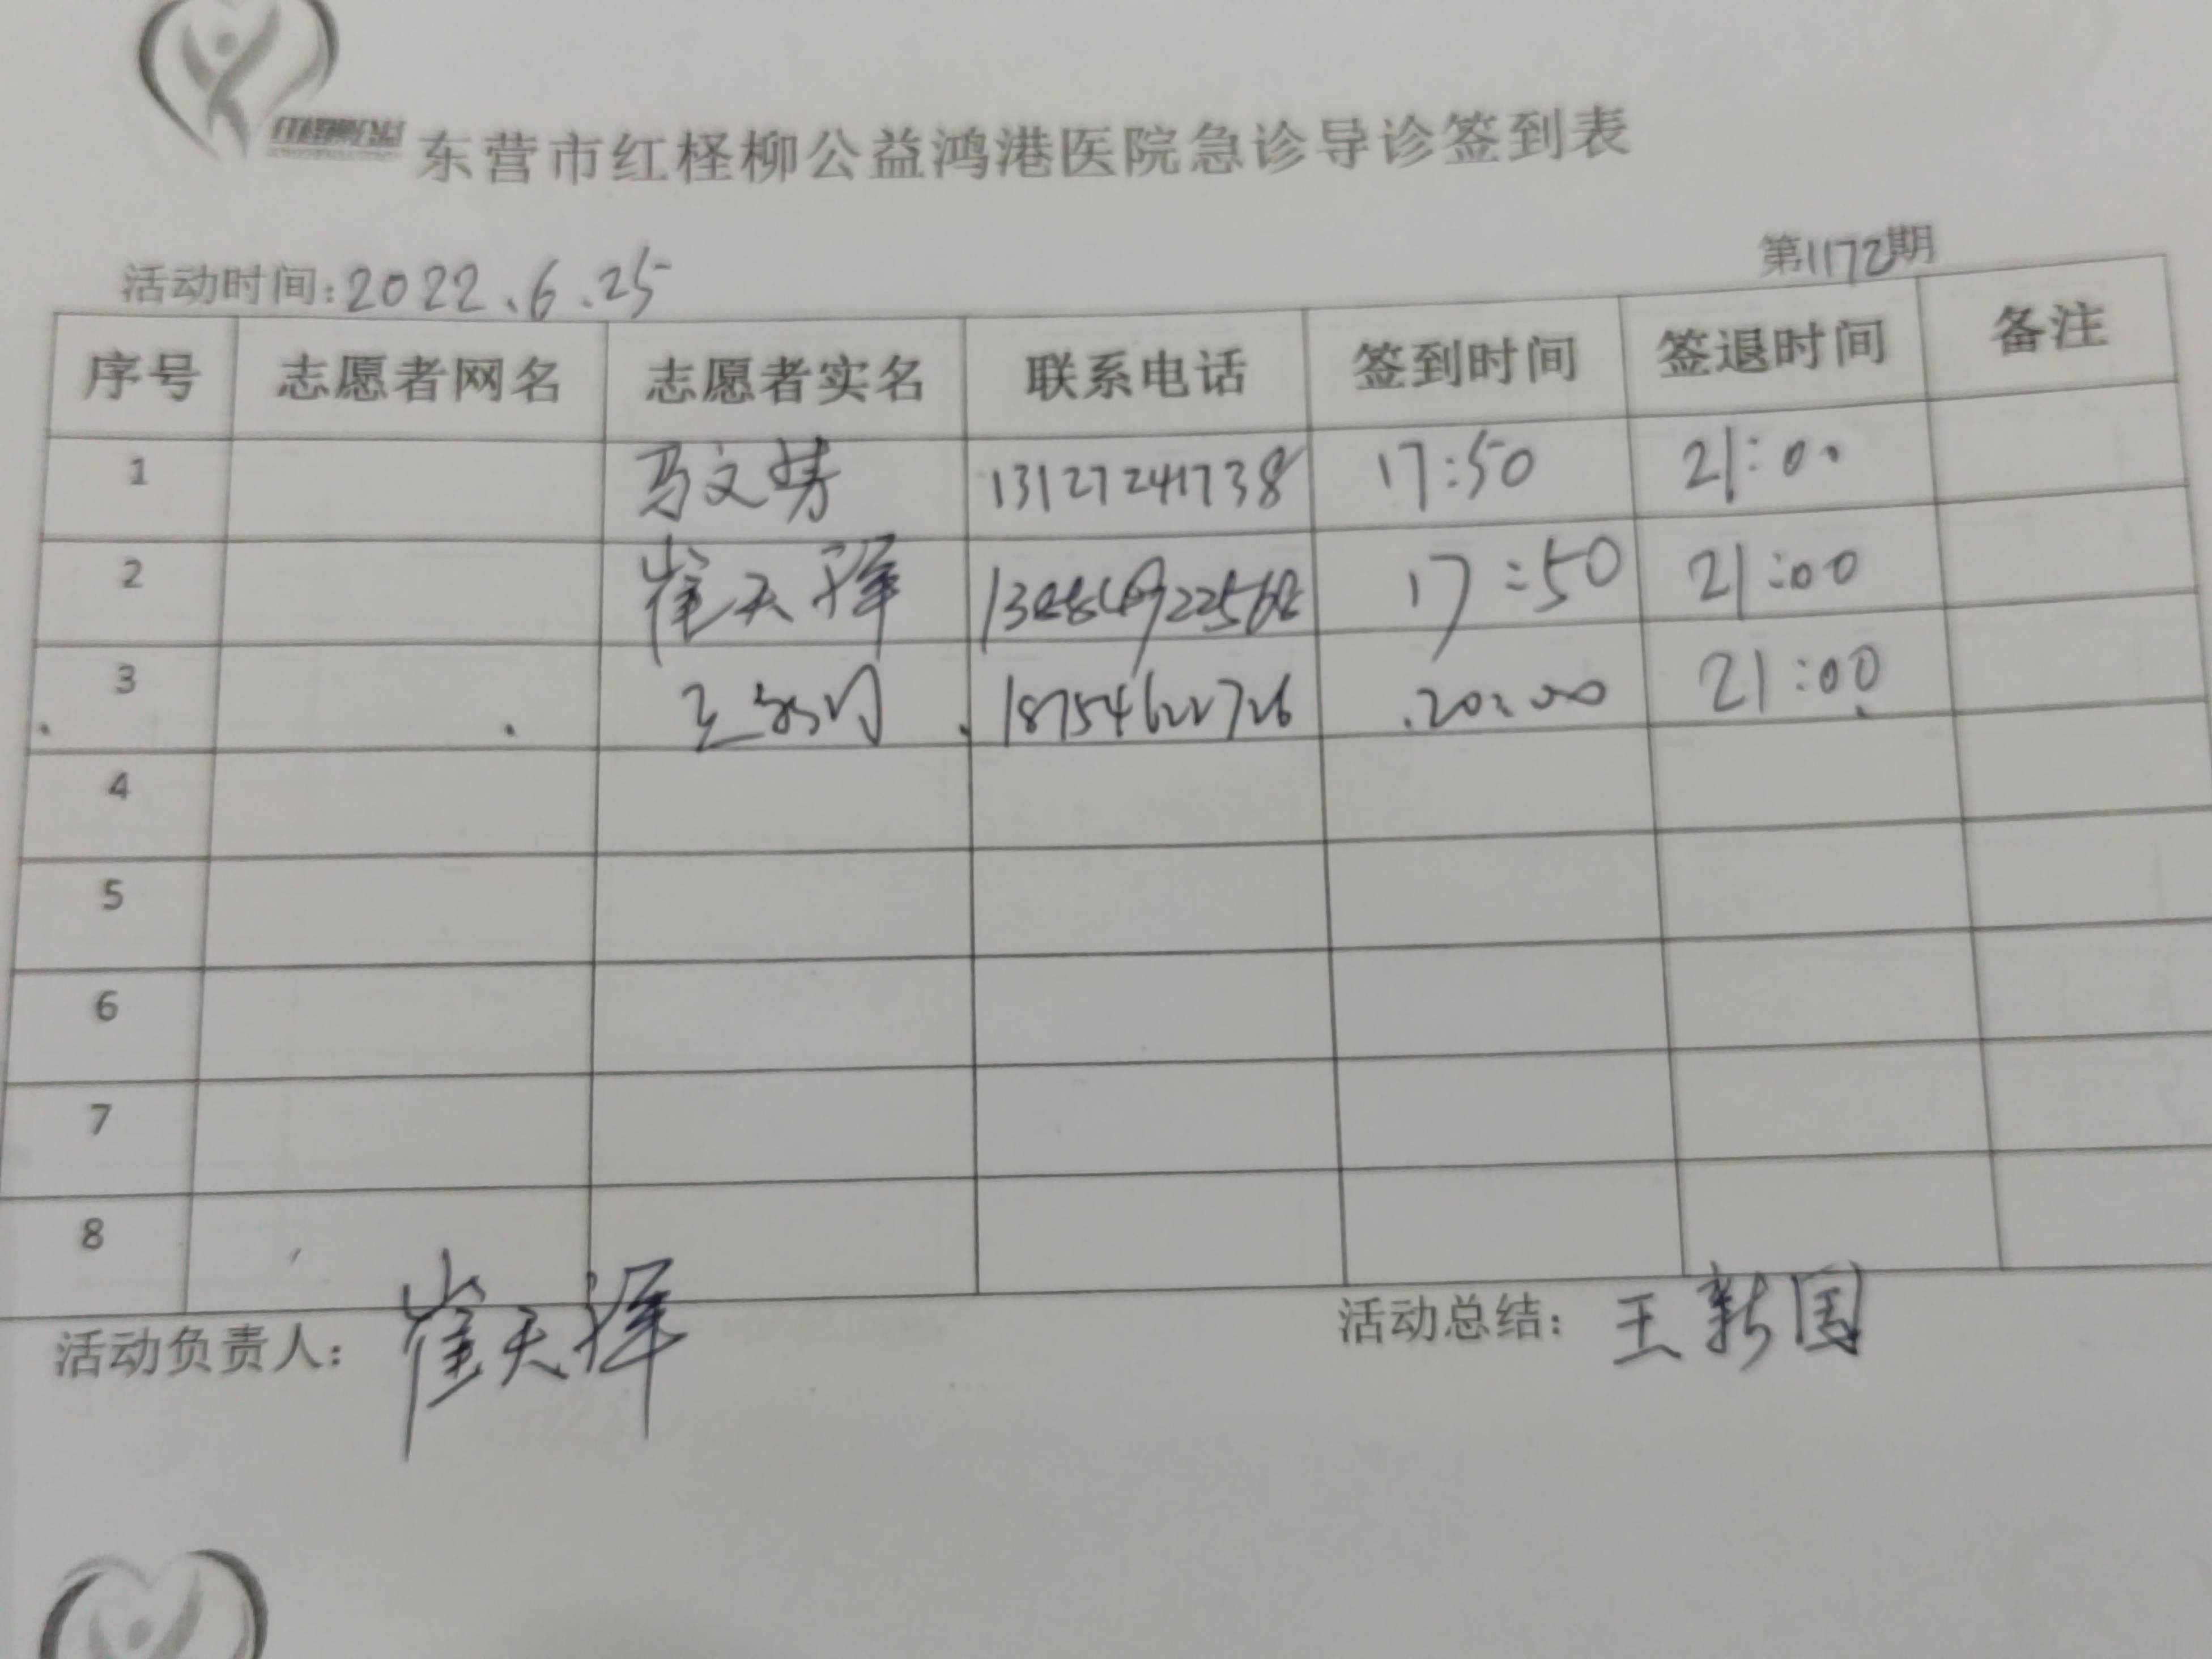 红柽柳公益
东营市红柽柳公益鸿港医院急诊导诊签到表
活动时间:2022.6.25 第1172期
序号 志愿者网名 志愿者实名 联系电话 签到时间 签退时间 备注
1 马文 13127241738 17:50 21:00
2 崔天泽 17:50 21:00
3 王 18754622726 20:00 21:00
4
5
6
7
8
活动负责人: 崔天泽 活动总结: 王新国